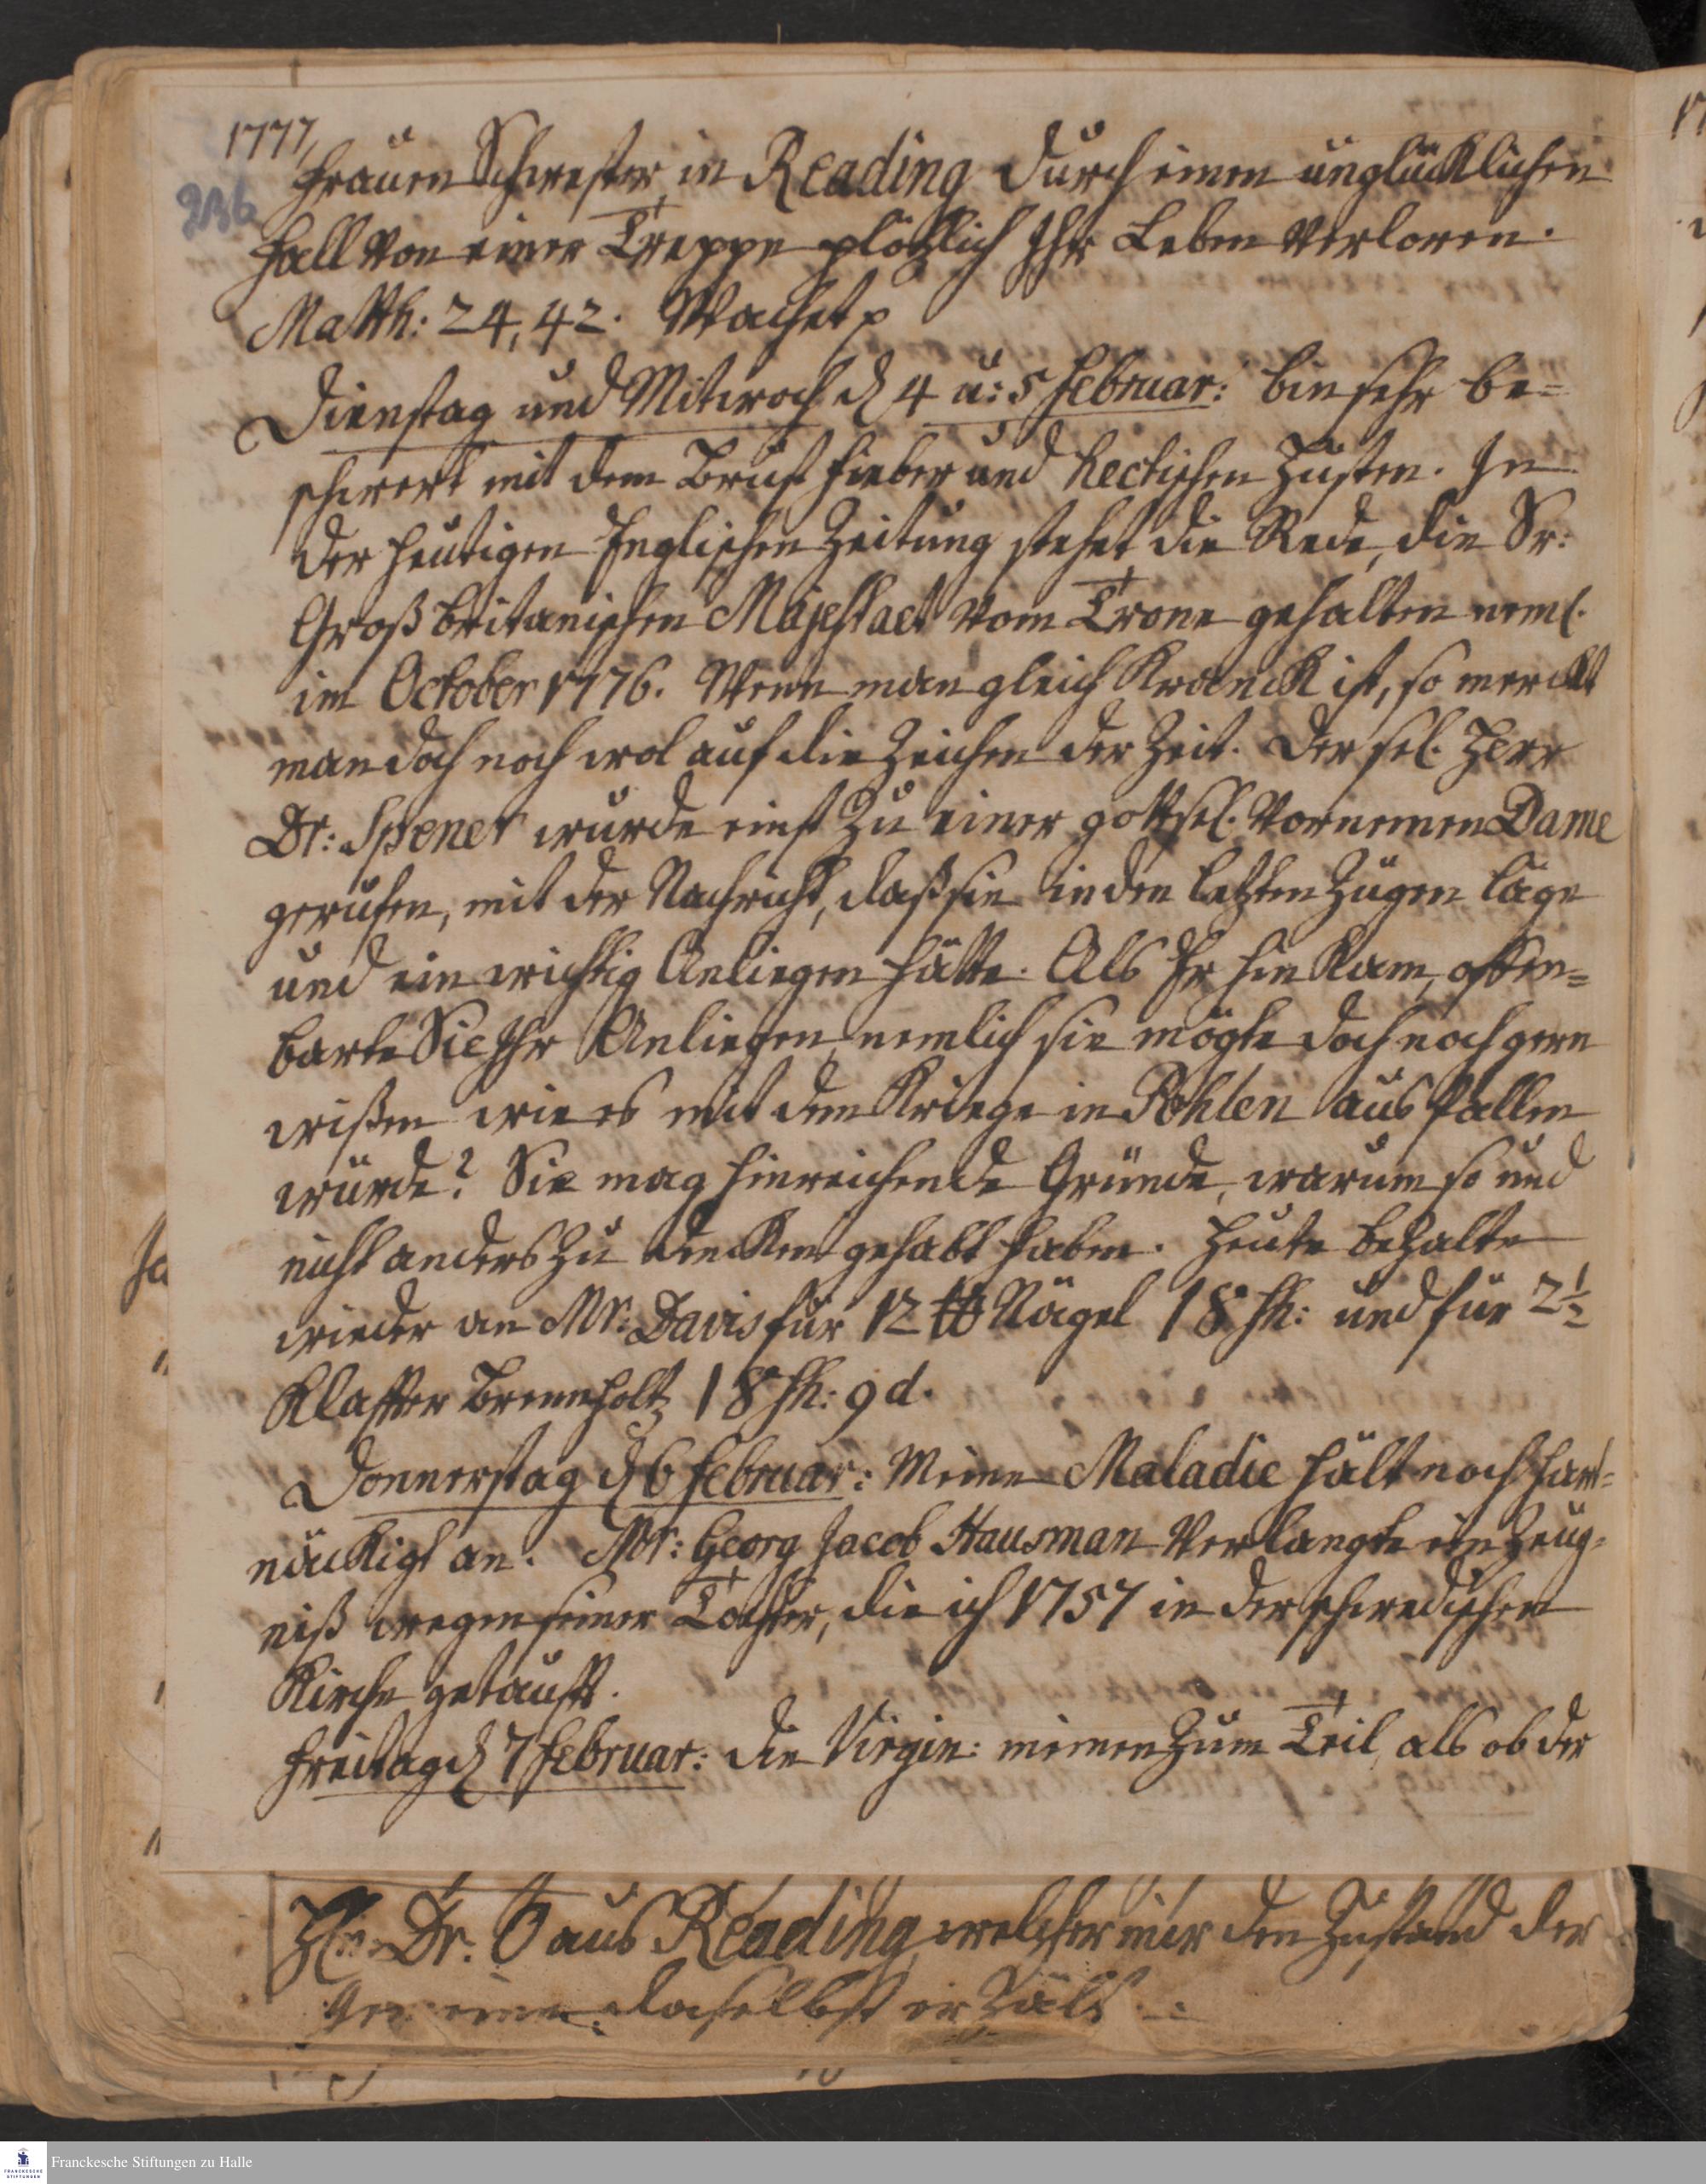 1777,
236
Frauen Schwester in Reading durch einen unglücklichen
Fall von einer Treppe plötzlich Ihr Leben verloren.
Matth: 24, 42. Wachet p
Dienstag und Mitwoch d 4 u: 5 Februar: bin sehr be=
schwert mit dem Brust Fieber und hectischen Husten. In
der heutigen Englischen Zeitung stehet die Rede, die Sr:
Großbritanischen Majestaet vom Trone gehalten neml.
im October 1776. Wenn man gleich Kranck ist, so merckt
man doch noch wol auf die Zeichen der Zeit. Der sel. Herr
Dr: Spener wurde einst zu einer gottsel. vornemen Dame
gerufen, mit der Nachricht, daß sie in den letzten Zügen läge
und ein wichtig Anliegen hätte. Als Er hin kam, offen=
barte Sie Ihr Anliegen, nemlich sie mögte doch noch gern
wißen wie es mit dem Kriege in Pohlen ausfallen
würde? Sie mag hinreichende Gründe, warum so und
nicht anders zu dencken gehabt haben. Heute bezalte
wieder an Mr: Davis für 12 ℔ Nägel 18 sh: und für 2½
Klaffter Brennholtz 18 sh: 9 d.
Donnerstag d 6 Februar: Meine Maladie hält noch hart=
näckigt an. Mr: Georg Jacob Hausman verlangte ein Zeug=
niß wegen seiner Tochter, die ich 1757 in der schwedischen
Kirche getaufft.
Freitag d 7 Februar: die Virgin: meinen zum Teil, als ob der
Dr. aus Reading, welcher mir den Zustand der
daselbst erzält
Franckesche Stiftungen zu Halle